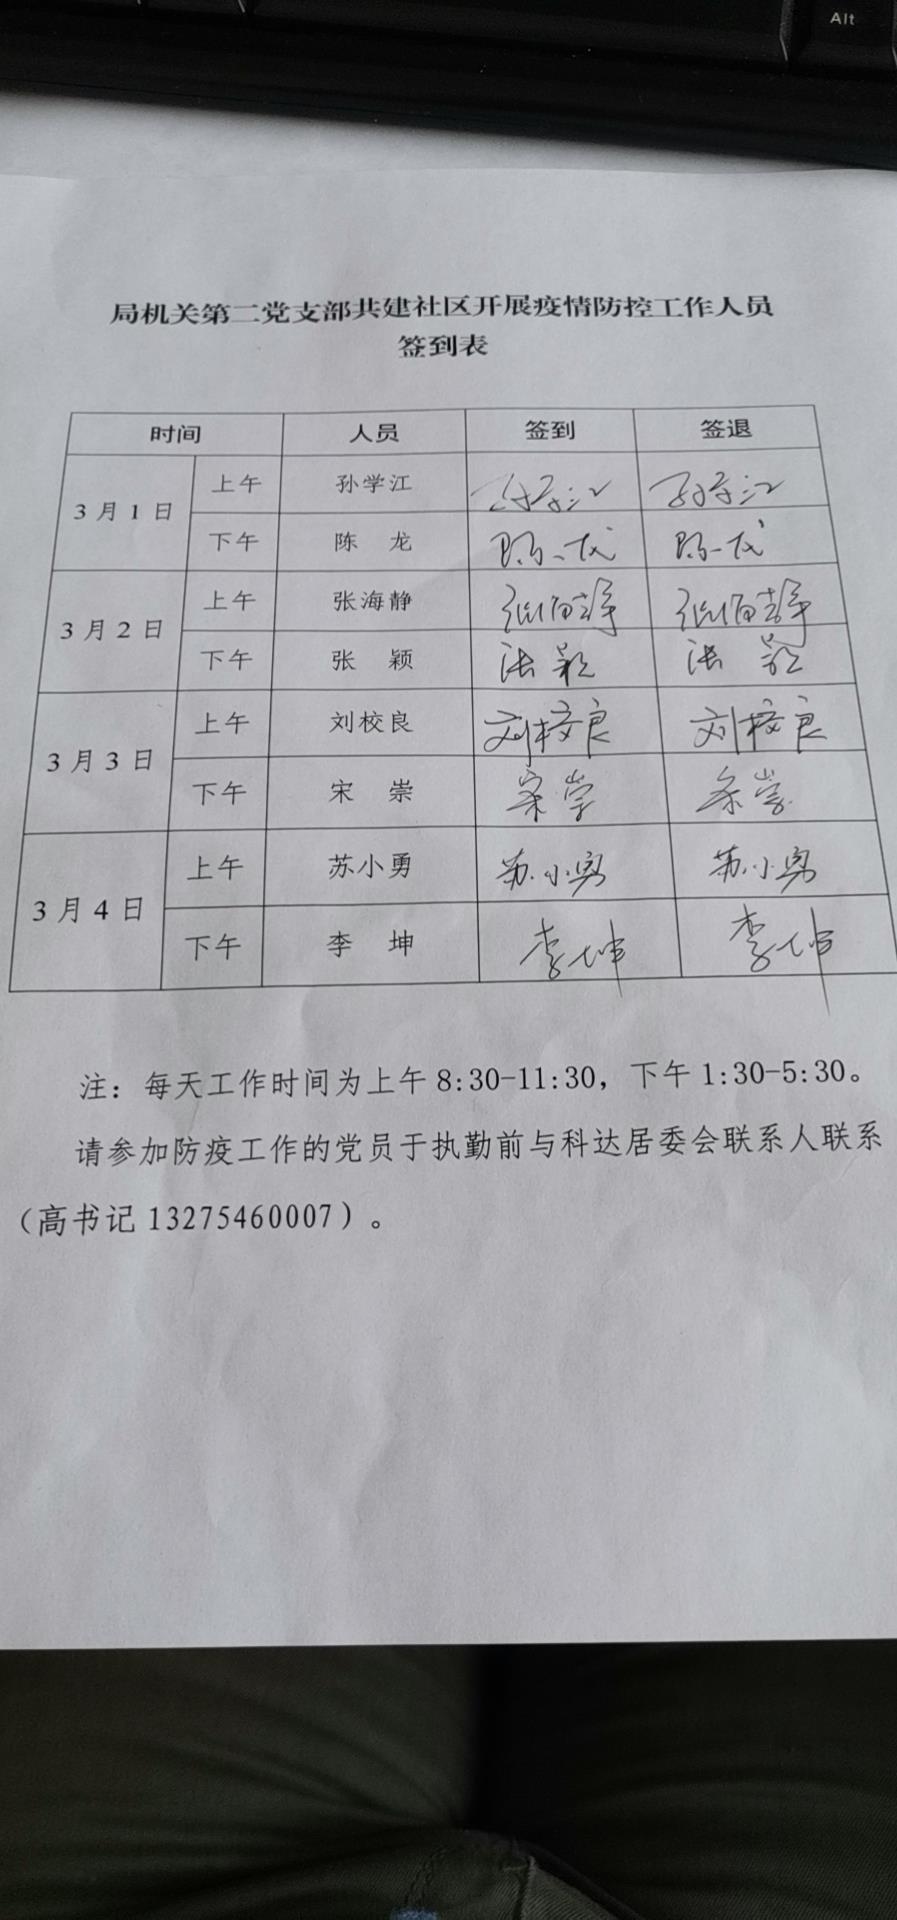 Alt
局机关第二党支部共建社区开展疫情防控工作人员
签到表
时间 人员 签到 签退
3月1日 上午 孙学江 孙学江 孙学江
下午 陈 龙 陈龙 陈龙
3月2日 上午 张海静 张海静 张海静
下午 张 颖 张颖 张颖
3月3日 上午 刘校良 刘校良 刘校良
下午 宋 崇 宋崇 宋崇
3月4日 上午 苏小勇 苏小勇 苏小勇
下午 李 坤 李坤 李坤
注：每天工作时间为上午 8:30-11:30，下午 1:30-5:30。
请参加防疫工作的党员于执勤前与科达居委会联系人联系
（高书记 13275460007）。